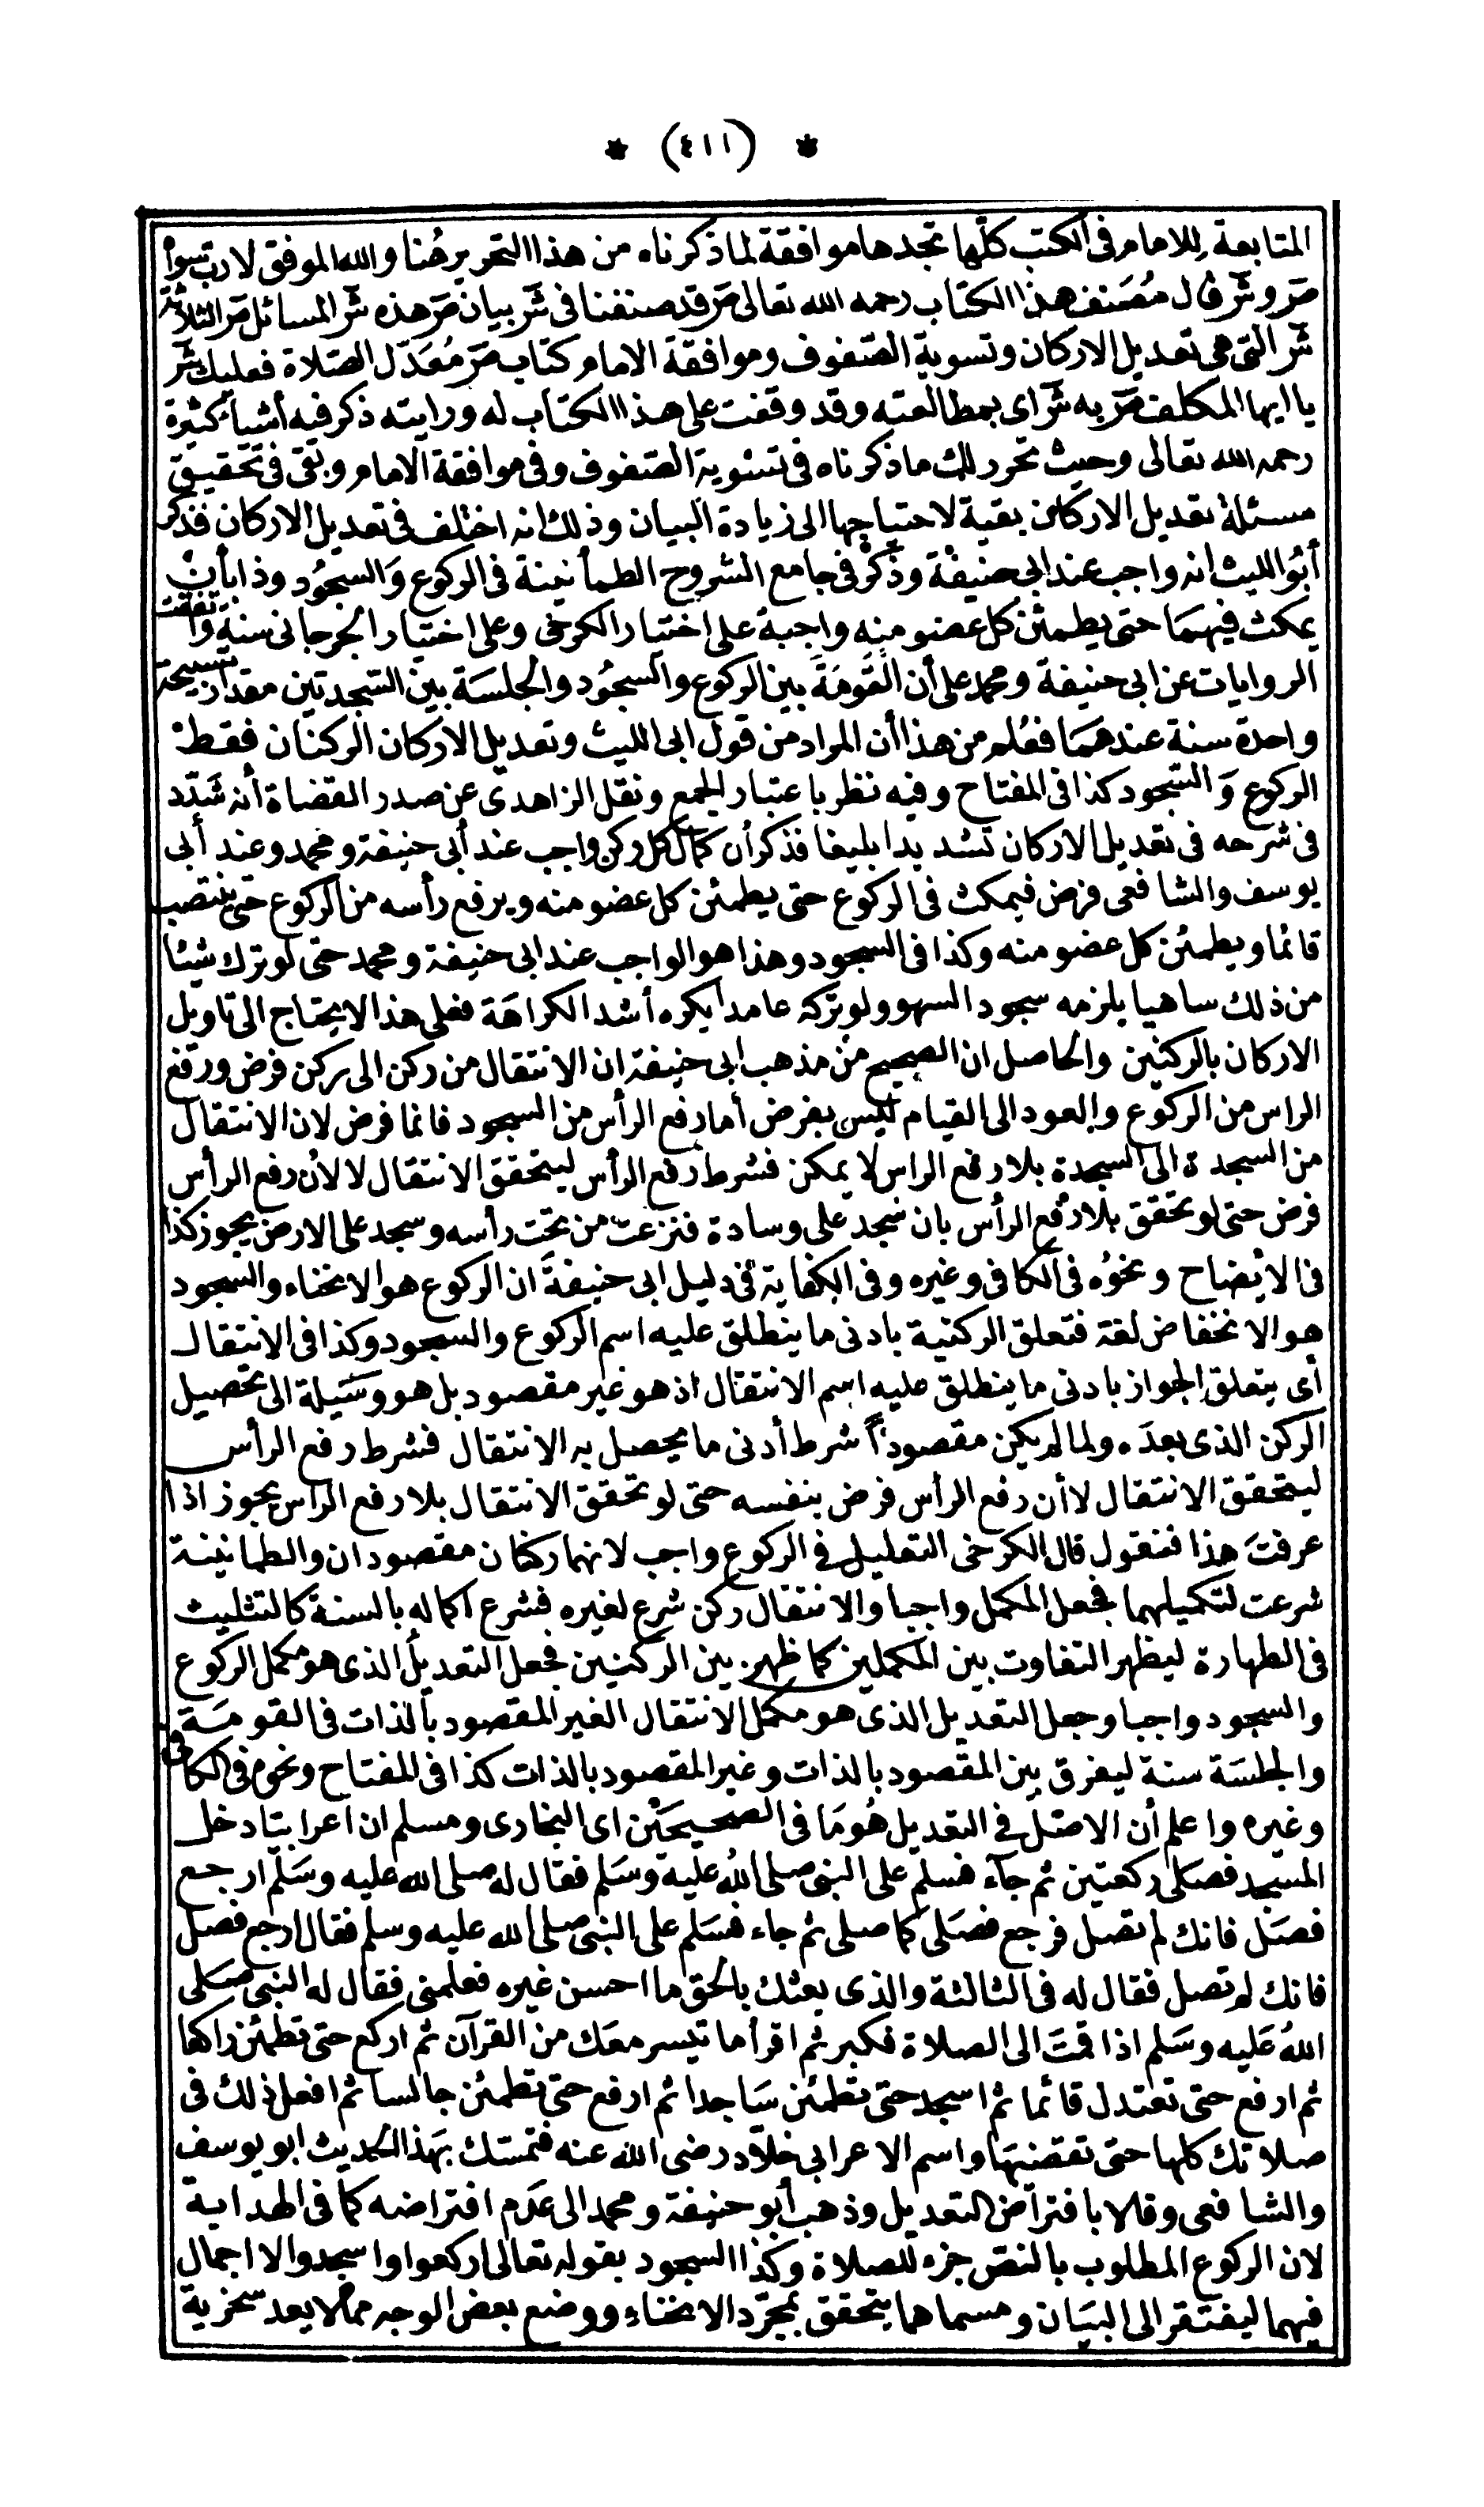 * (٤١١) *
المتابعة للامام فى الكتب كلها تجدها موافقة لما ذكرناه من هذا التحرير هُنا والله الموفق لا رب سواه
صَر و شَر قال مُصَنف هذا الكتاب رحمه الله تعالى صَر قد صنفنا فى شَر بيان صَر هذه شَر المسائل صَر الثلاثة
شَر التى هى تعديل الاركان وتسوية الصّفوف وموافقة الامام كتاب صَر مُعَدّل الصّلاة فعليك شَر
يا ايها المكلف صَر به شَر اى بمطالعته وقد وقفت على هذا الكتاب له ورايته ذكر فيه أشياء كثيرة
رحمه الله تعالى وحيث تحرر لك ما ذكرناه فى تسوية الصّفوف وفى موافقة الامام وبقى فى تحقيق
مسئلة تعديل الاركان بقية لاحتياجها الى زيادة البيان وذلك انه اختلف فى تعديل الاركان فذكر
أبُو الليث انه واجب عند ابى حنيفة وذكر فى جامع الشروح الطمأنينة فى الركوع وَالسجُود وذا بأن
يمكث فيهمَا حتى يطمئن كل عضو منه واجبة على اختيار الكرخى وعلى اختيار الجرجانى سنة واتفقت
الروايات عن ابى حنيفة ومحمد على أن القَومَةَ بين الركوع والسجُود والجلسَة بين السّجدتين مقدار تسبيحة
واحدة سنة عندهمَا فعُلم من هذا أن المراد من قول ابى الليث وتعديل الاركان الركنان فقط
الركوع وَالسّجود كذا فى المفتاح وفيه نظر باعتبار الجمع ونقل الزاهدى عن صدر القضاة أنه شَدّد
فى شرحه فى تعديل الاركان تشديدا بليغا فذكر أن كمال كل ركن واجب عند أبى حنيفة ومحمد وعند أبى
يوسف والشافعى فرض فيمكث فى الركوع حتى يطمئن كل عضو منه ويرفع رأسه من الركوع حتى ينتصب
قائما ويطمئن كل عضو منه وكذا فى السجود وهذا هو الواجب عند ابى حنيفة ومحمد حتى لو ترك شيئا
من ذلك ساهيا يلزمه سجود السهو ولو تركه عامدا يكره أشد الكراهَة فعلى هذا لا يحتاج الى تاويل
الاركان بالركنين والحاصل ان الصحيح من مذهب ابى حنيفة ان الانتقال من ركن الى ركن فرض ورفع
الراس من الركوع والعود الى القيام ليس بفرض أما رفع الرأس من السجود فانما فرض لان الانتقال
من السجدة الى السجدة بلا رفع الراس لا يمكن فشرط رفع الرأس ليتحقق الانتقال لا لأن رفع الرأس
فرض حتى لو تحقق بلا رفع الرأس بان سجد على وسادة فنزعت من تحت رأسه وسجد على الارض يجوز كذا
فى الايضاح ونحوُه فى الكافى وغيره وفى الكفاية فى دليل ابى حنيفة ان الركوع هو الانحناء والسجود
هو الانخفاض لغة فتعلق الركنية بادنى ما ينطلق عليه اسم الركوع والسجود وكذا فى الانتقال
اى يتعلق الجواز بادنى ما ينطلق عليه اسم الانتقال اذ هو غير مقصود بل هو وسَيلة الى تحصيل
الركن الذى بعدَه ولما لم يكن مقصوداً شرط أدنى ما يحصل به الانتقال فشرط رفع الرأس
ليتحقق الانتقال لا أن رفع الرأس فرض بنفسه حتى لو تحقق الانتقال بلا رفع الراس يجوز اذا
عرفتَ هذا فنقول قال الكرخى التعليل فى الركوع واجب لانهما ركنان مقصودان والطمانينة
شرعت لتكميلهما فجعل المكمل واجبا والانتقال ركن شرع لغيره فشرع اكماله بالسنة كالتثليث
فى الطهارة ليظهر التفاوت بين المكملين كما ظهر بين الركنين فجعل التعديل الذى هو مكمل الركوع
والسجود واجبا وجعل التعديل الذى هو مكمل الانتقال الغير المقصود بالذات فى القومَة
والجلسَة سنة ليفرق بين المقصود بالذات وغير المقصود بالذات كذا فى المفتاح ونحوه فى الكافى
وغيره واعلم أن الاصَل فى التعديل هُو مَا فى الصحيحَين اى البخارى ومسلم ان اعرابيا دخل
المسجد فصَلى ركعتين ثم جآء فسلم على النبى صلى اللهُ عليه وسَلم فقال له صلى الله عليه وسَلم ارجع
فصَل فانك لم تصل فرجع فصَلى كما صلى ثم جاء فسَلم على النبى صلى الله عليه وسلم فقال ارجع فصل
فانك لم تصل فقال له فى الثالثة والذى بعثك بالحق ما احسن غيره فعلمنى فقال له النبى صَلى
اللهُ عَليه وسَلم اذا قمتَ الى الصلاة فكبر ثم اقرأ ما تيسر معَك من القرآن ثم اركع حتى تطمئن راكعا
ثم ارفع حتى تعتدل قائما ثم اسجد حتى تطمئن سَاجدا ثم ارفع حتى تطمئن جالسا ثم افعل ذلك فى
صلاتك كلها حتى تقضيهَا واسم الاعرابى خلاّد رضى الله عنه فتمسَّك بهَذا الحديث ابو يوسف
والشافعى وقالا بافتراض التعديل وذهب أبو حنيفة ومحمد الى عَدَم افتراضه كما فى الهداية
لان الركوع المطلوب بالنصّ جزء للصلاة وكذا السجود بقوله تعالى اركعوا واسجدوا لا اجمال
فيهما ليفتقر الى البيَان ومسماهما يتحقق بمجرّد الانحناء ووضع بعض الوجه مما لا يعد سخرية